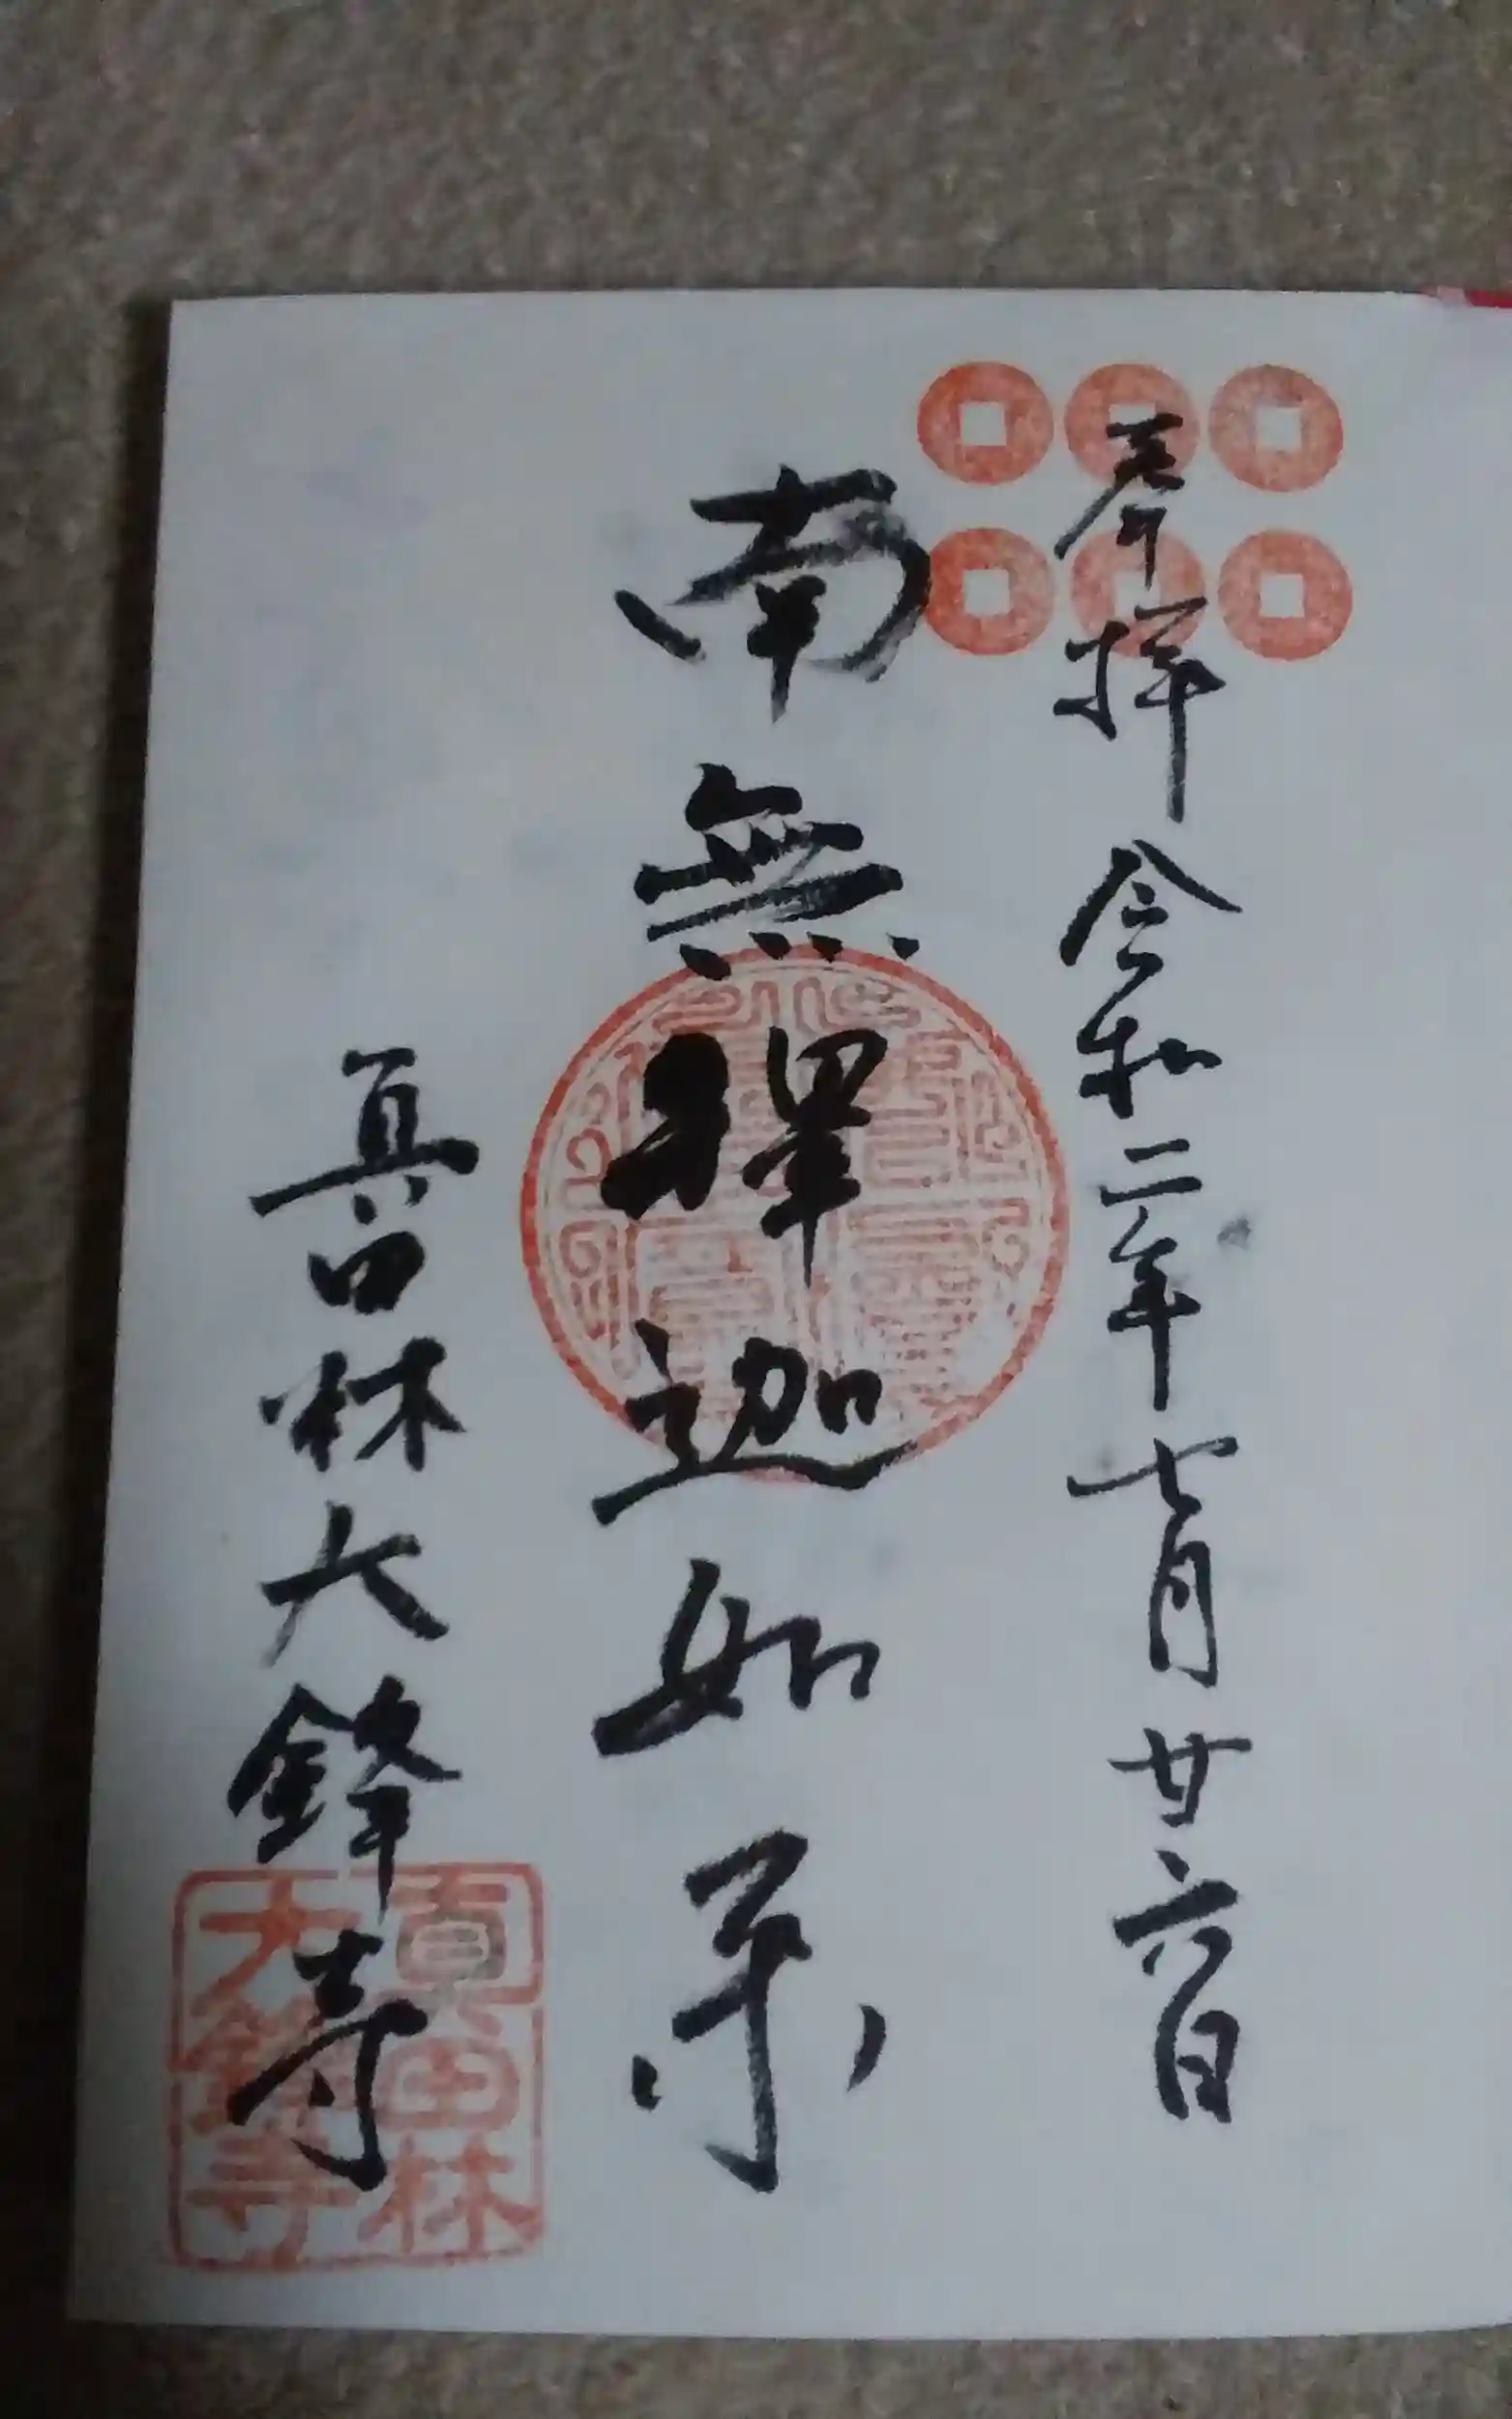 奉拝 令和二年七月廿六日
南無釋迦如来
真田林大鋒寺
真田林
大鋒寺